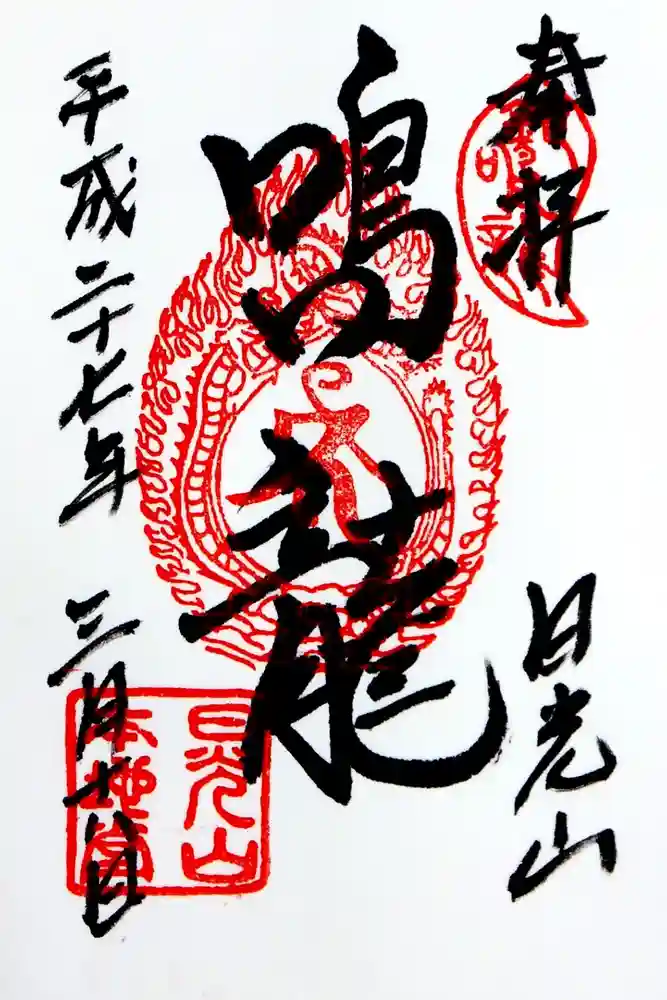 奉拝
日光山
鳴龍
平成二十七年 三月十八日
日光山
本地堂